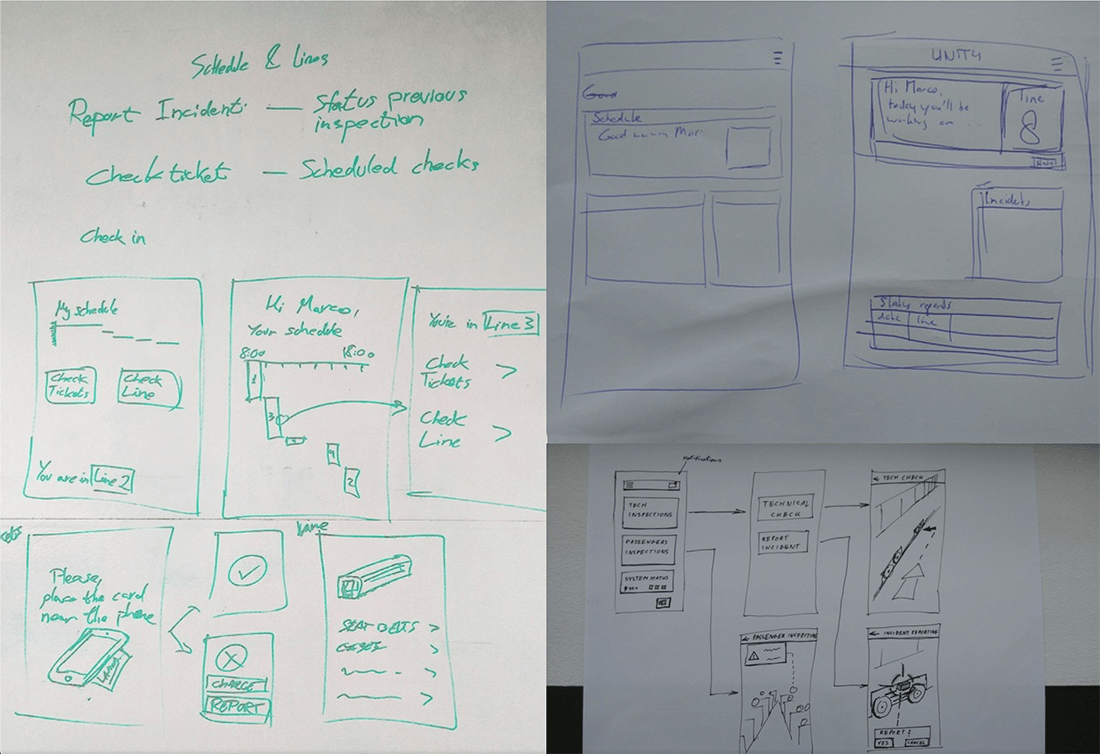 Schedule & Lines
Report Incident — Status previous
inspection
Check ticket — Scheduled checks
Check in
My schedule
Check
Tickets
Check
Line
You are in Line 2
Hi Marco,
Your schedule
8:00 18:00
1
3
2
You're in Line 3
Check
Tickets >
Check
Line >
Please,
place the card
near the phone
CHARGE
REPORT
SEAT BELTS >
Schedule
UNITY
Hi Marco,
today you'll be
working on...
Line
8
Incidents
Status reports
date line
Notifications
TECH
INSPECTIONS
PASSENGERS
INSPECTIONS
SYSTEM STATUS
TECHNICAL
CHECK
REPORT
INCIDENT
← TECH CHECK
← PASSENGER INSPECTING
← INCIDENT REPORTING
REPORT?
YES CANCEL